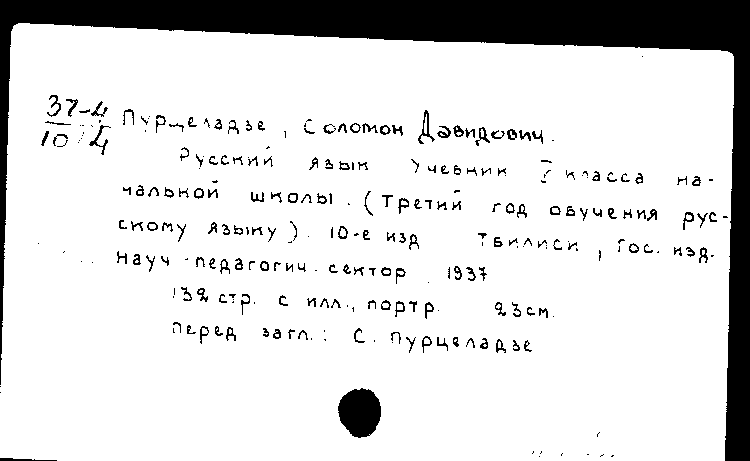 37-4
10/4
Пурцеладзе, Соломон Давидович.
Русский язык Учебник класса на-
чальной школы. (Третий год обучения рус-
скому языку). 10-е изд Тбилиси, Гос. изд.
науч-педагогич. сектор. 1937
132 стр. с илл., портр. 23 см.
Перед загл.: С. Пурцеладзе